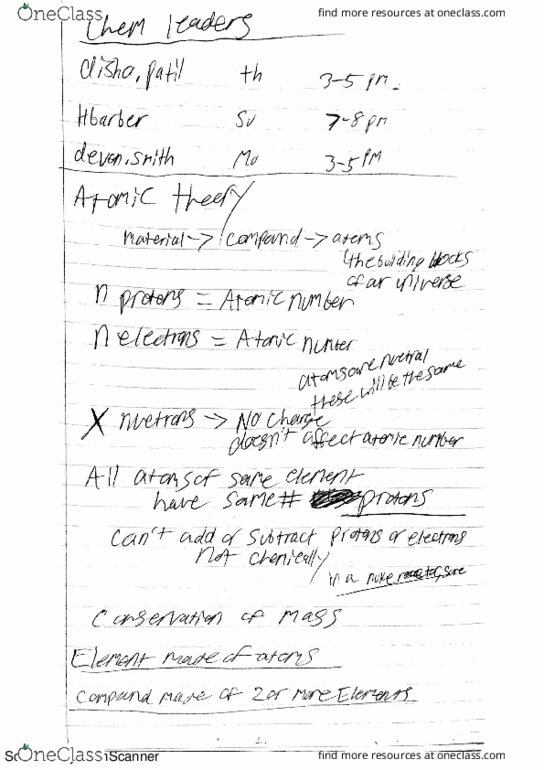 OneClass
find more resources at oneclass.com
Chem leaders
disha.patil th 3-5 pm.
Hbarber Su 7-8 pm
devon.smith Mo 3-5 PM
Atomic theory
material -> compound -> atoms
the building blocks
of our universe
n protons = Atomic number
n electrons = Atomic number
atoms are nuetral
these will be the same
X nuetrons -> No charge
doesn't affect atomic number
All atoms of same element
have same # protons
can't add or subtract protons or electrons
not chemically
in a nuke sure
Conservation of Mass
Element made of atoms
Compound made of 2 or more Elements
OneClass
Scanner
find more resources at oneclass.com